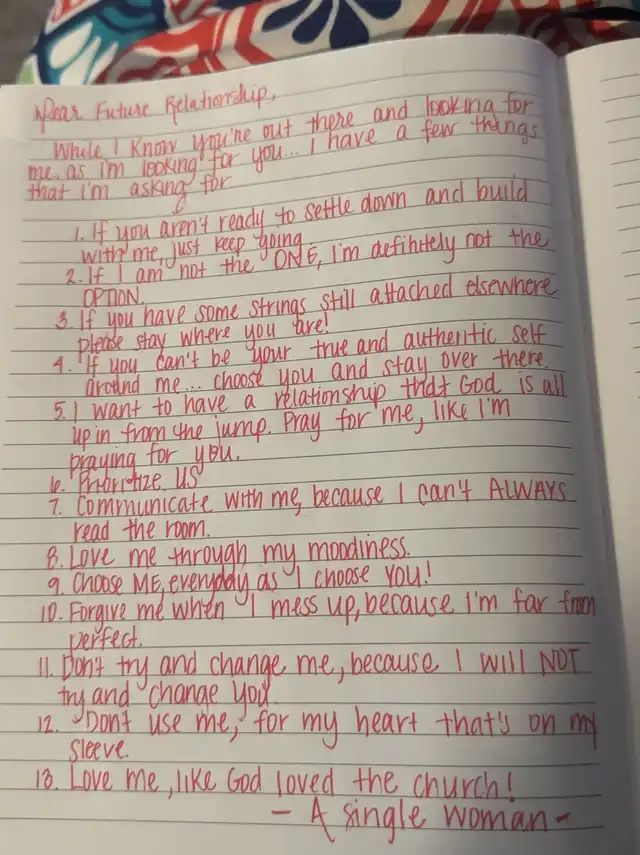 Dear Future Relationship,
While I know you're out there and looking for
me, as I'm looking for you... I have a few things
that I'm asking for
1. If you aren't ready to settle down and build
with me, just keep going
2. If I am not the ONE, I'm definitely not the
OPTION.
3. If you have some strings still attached elsewhere
please stay where you are!
4. If you can't be your true and authentic self
around me... choose you and stay over there.
5. I want to have a relationship that God is all
up in from the jump. Pray for me, like I'm
praying for you.
6. Prioritize US
7. Communicate with me, because I can't ALWAYS
read the room.
8. Love me through my moodiness.
9. Choose ME, everyday as I choose YOU!
10. Forgive me when I mess up, because I'm far from
perfect.
11. Don't try and change me, because I WILL NOT
try and change you
12. Don't use me, for my heart that's on my
sleeve.
13. Love me, like God loved the church!
- A single woman -